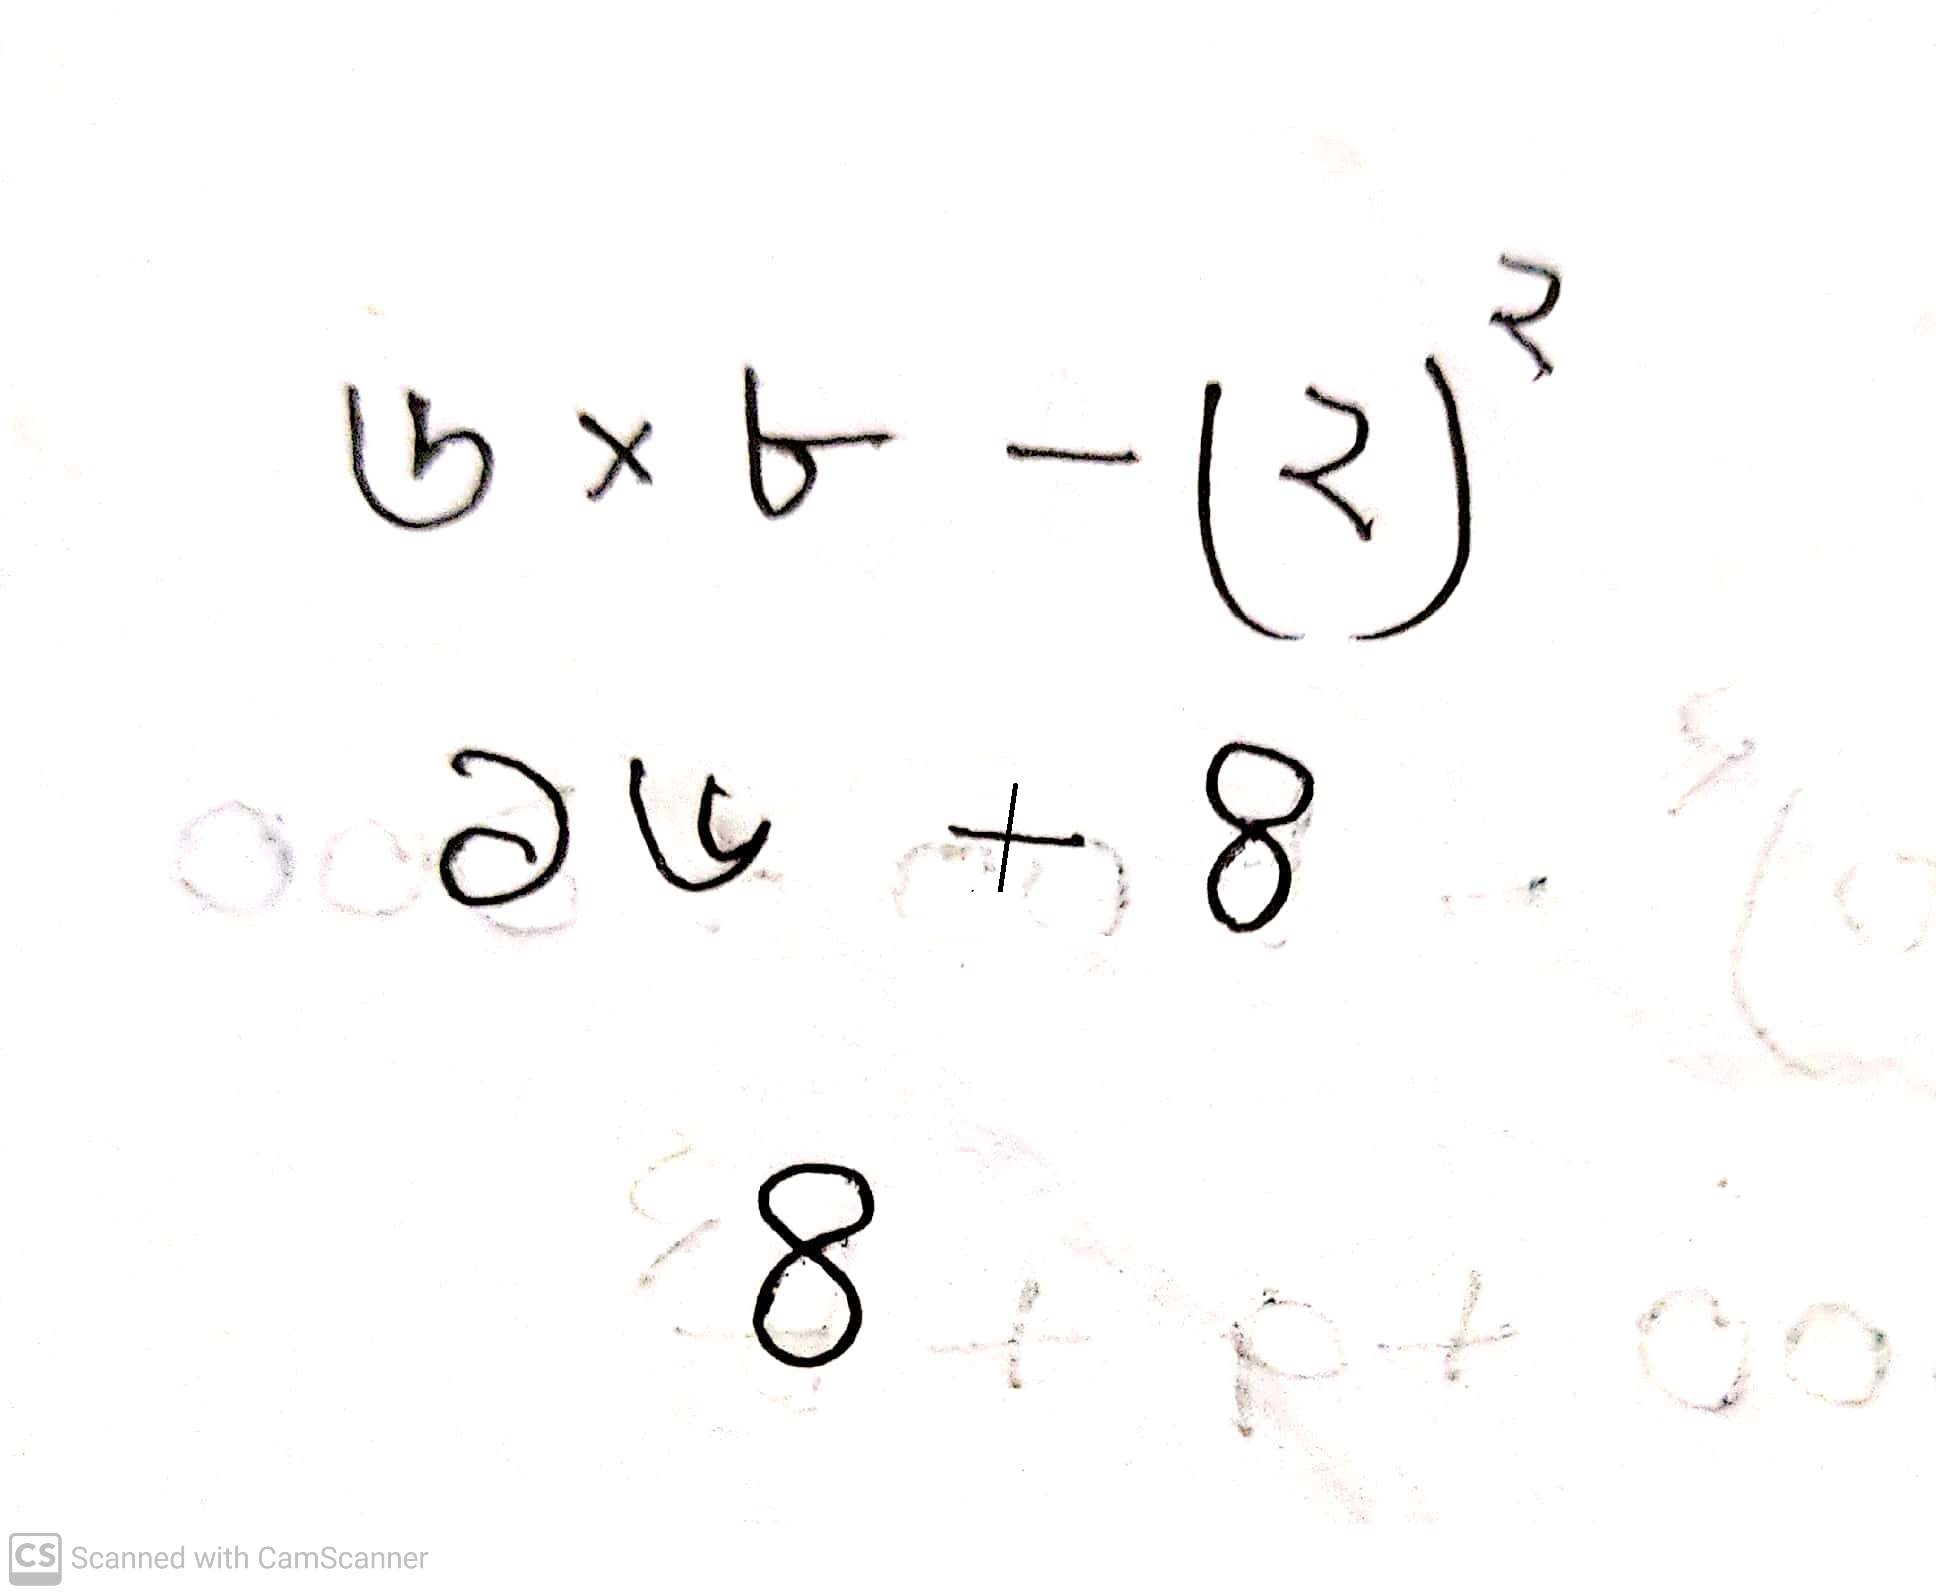 ৩ × ৮ − (২)^২
১৬ + ৪
৪
CS Scanned with CamScanner